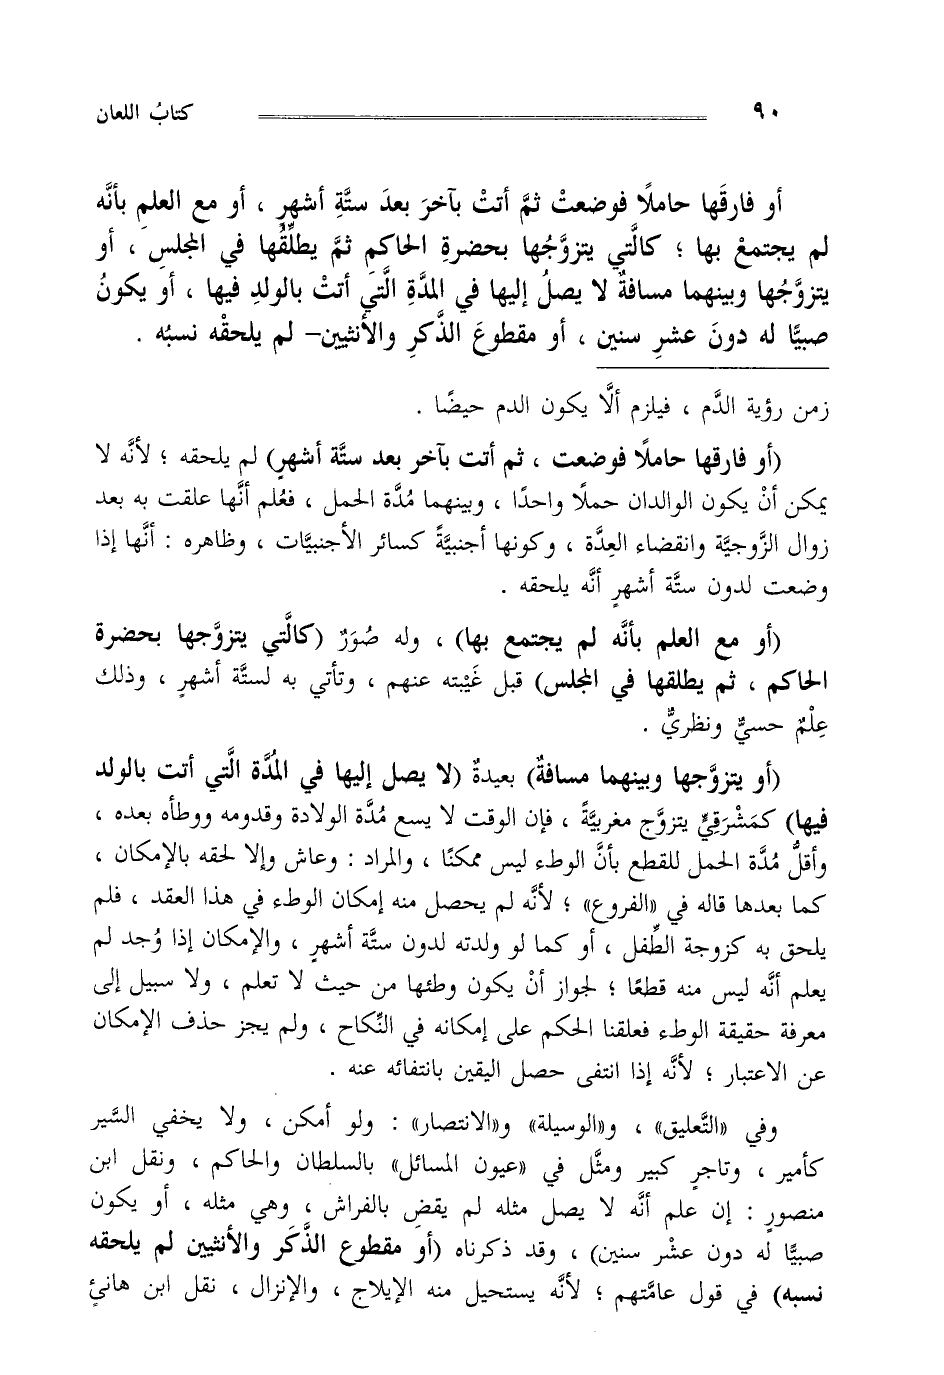 ٩٠ كتابُ اللعان
أو فارقَها حاملًا فوضعتْ ثمَّ أتتْ بآخرَ بعدَ ستَّةِ أشهرٍ ، أو مع العلمِ بأنَّه
لم يجتمعْ بها ؛ كالَّتي يتزوَّجُها بحضرةِ الحاكمِ ثمَّ يطلِّقُها في المجلسِ ، أو
يتزوَّجُها وبينهما مسافةٌ لا يصلُ إليها في المدَّةِ الَّتي أتتْ بالولدِ فيها ، أو يكونُ
صبيًّا له دونَ عشرِ سنين ، أو مقطوعَ الذَّكرِ والأنثيين– لم يلحقْه نسبُه .
زمن رؤية الدَّم ، فيلزم ألَّا يكون الدم حيضًا .
(أو فارقها حاملًا فوضعت ، ثم أتت بآخر بعد ستَّة أشهرٍ) لم يلحقه ؛ لأنَّه لا
يمكن أنْ يكون الوالدان حملًا واحدًا ، وبينهما مُدَّة الحمل ، فعُلم أنَّها علقت به بعد
زوال الزَّوجيَّة وانقضاء العِدَّة ، وكونها أجنبيَّةً كسائر الأجنبيَّات ، وظاهره : أنَّها إذا
وضعت لدون ستَّة أشهرٍ أنَّه يلحقه .
(أو مع العلم بأنَّه لم يجتمع بها) ، وله صُوَرٌ (كالَّتي يتزوَّجها بحضرة
الحاكم ، ثم يطلقها في المجلس) قبل غَيْبته عنهم ، وتأتي به لستَّة أشهرٍ ، وذلك
عِلْمٌ حسيٌّ ونظريٌّ .
(أو يتزوَّجها وبينهما مسافةٌ) بعيدةٌ (لا يصل إليها في المُدَّة الَّتي أتت بالولد
فيها) كمَشْرَقِيٍّ يتزوَّج مغربيَّةً ، فإن الوقت لا يسع مُدَّة الولادة وقدومه ووطأه بعده ،
وأقلُّ مُدَّة الحمل للقطع بأنَّ الوطء ليس ممكنًا ، والمراد : وعاش وإلا لحقه بالإمكان ،
كما بعدها قاله في «الفروع» ؛ لأنَّه لم يحصل منه إمكان الوطء في هذا العقد ، فلم
يلحق به كزوجة الطِّفل ، أو كما لو ولدته لدون ستَّة أشهرٍ ، والإمكان إذا وُجد لم
يعلم أنَّه ليس منه قطعًا ؛ لجواز أنْ يكون وطئها من حيث لا تعلم ، ولا سبيل إلى
معرفة حقيقة الوطء فعلقنا الحكم على إمكانه في النِّكاح ، ولم يجز حذف الإمكان
عن الاعتبار ؛ لأنَّه إذا انتفى حصل اليقين بانتفائه عنه .
وفي «التَّعليق» ، و«الوسيلة» و«الانتصار» : ولو أمكن ، ولا يخفي السَّير
كأمير ، وتاجرٍ كبير ومثَّل في «عيون المسائل» بالسلطان والحاكم ، ونقل ابن
منصورٍ : إن علم أنَّه لا يصل مثله لم يقضِ بالفراش ، وهي مثله ، أو يكون
صبيًّا له دون عشْر سنين) ، وقد ذكرناه (أو مقطوع الذَّكَر والأنثيين لم يلحقه
نسبه) في قول عامَّتهم ؛ لأنَّه يستحيل منه الإيلاج ، والإنزال ، نقل ابن هانئٍ